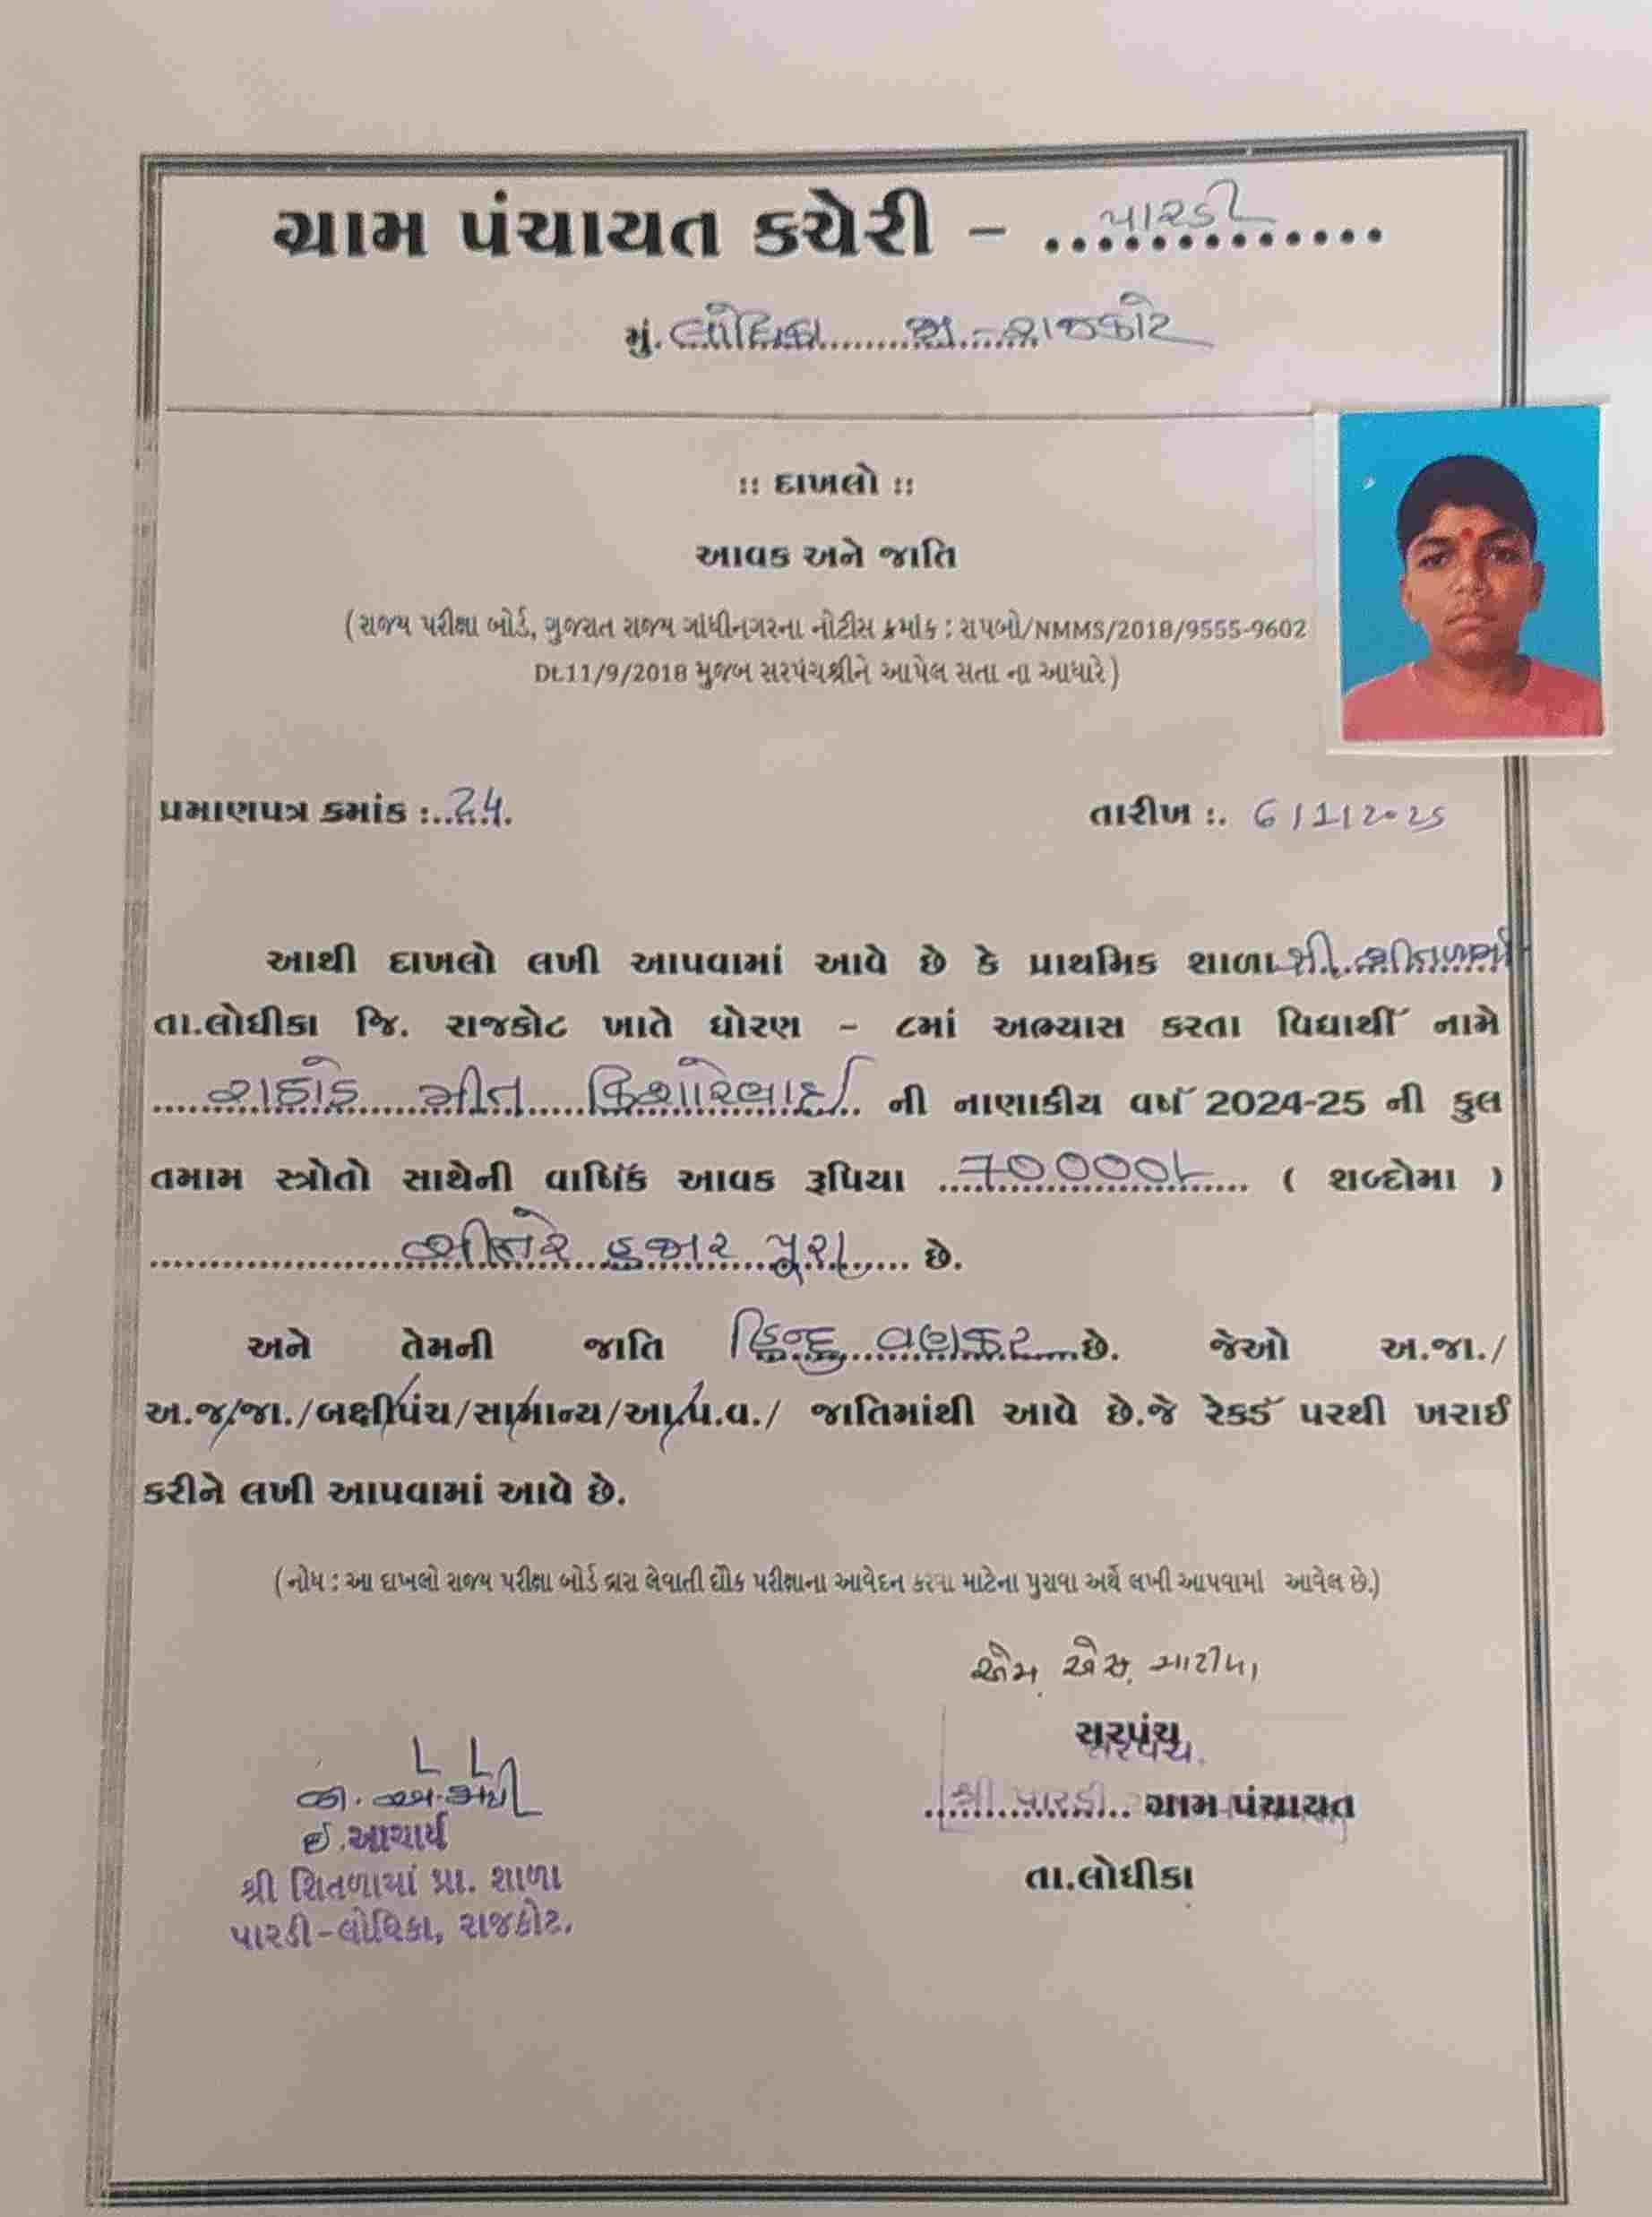 ગ્રામ પંચાયત કચેરી - પારડી
મું. લોધિકા જી.-રાજકોટ
:: દાખલો ::
આવક અને જાતિ
(રાજ્ય પરીક્ષા બોર્ડ, ગુજરાત રાજ્ય ગાંધીનગરના નોટીસ ક્રમાંક : રાપબો/NMMS/2018/9555-9602
Dt.11/9/2018 મુજબ સરપંચશ્રીને આપેલ સતા ના આધારે)
પ્રમાણપત્ર ક્માંક :..24.
તારીખ :. 6/1/2025
આથી દાખલો લખી આપવામાં આવે છે કે પ્રાથમિક શાળા શ્રી. શીતળામાં
તા.લોધીકા જિ. રાજકોટ ખાતે ધોરણ - ૮માં અભ્યાસ કરતા વિદ્યાર્થી નામે
રાઠોડ મીત કિશોરભાઈ ની નાણાકીય વર્ષ 2024-25 ની કુલ
તમામ સ્ત્રોતો સાથેની વાર્ષિક આવક રૂપિયા 70000/- ( શબ્દોમા )
સીતેર હજાર પુરા છે.
અને તેમની જાતિ હિન્દુ વણકર છે. જેઓ અ.જા./
અ.જ/જા./બક્ષીપંચ/સામાન્ય/આ.પ.વ./ જાતિમાંથી આવે છે.જે રેકર્ડ પરથી ખરાઈ
કરીને લખી આપવામાં આવે છે.
(નોધ : આ દાખલો રાજ્ય પરીક્ષા બોર્ડ દ્રારા લેવાતી શૈક્ષણિક પરીક્ષાના આવેદન કરવા માટેના પુરાવા અર્થે લખી આપવામાં આવેલ છે.)
એમ. એસ.
સરપંચ
સરપંચ.
શ્રી પારડી ગ્રામ પંચાયત
તા.લોધીકા
ઈ.આચાર્ય
શ્રી શિતળામાં પ્રા. શાળા
પારડી-લોધિકા, રાજકોટ.